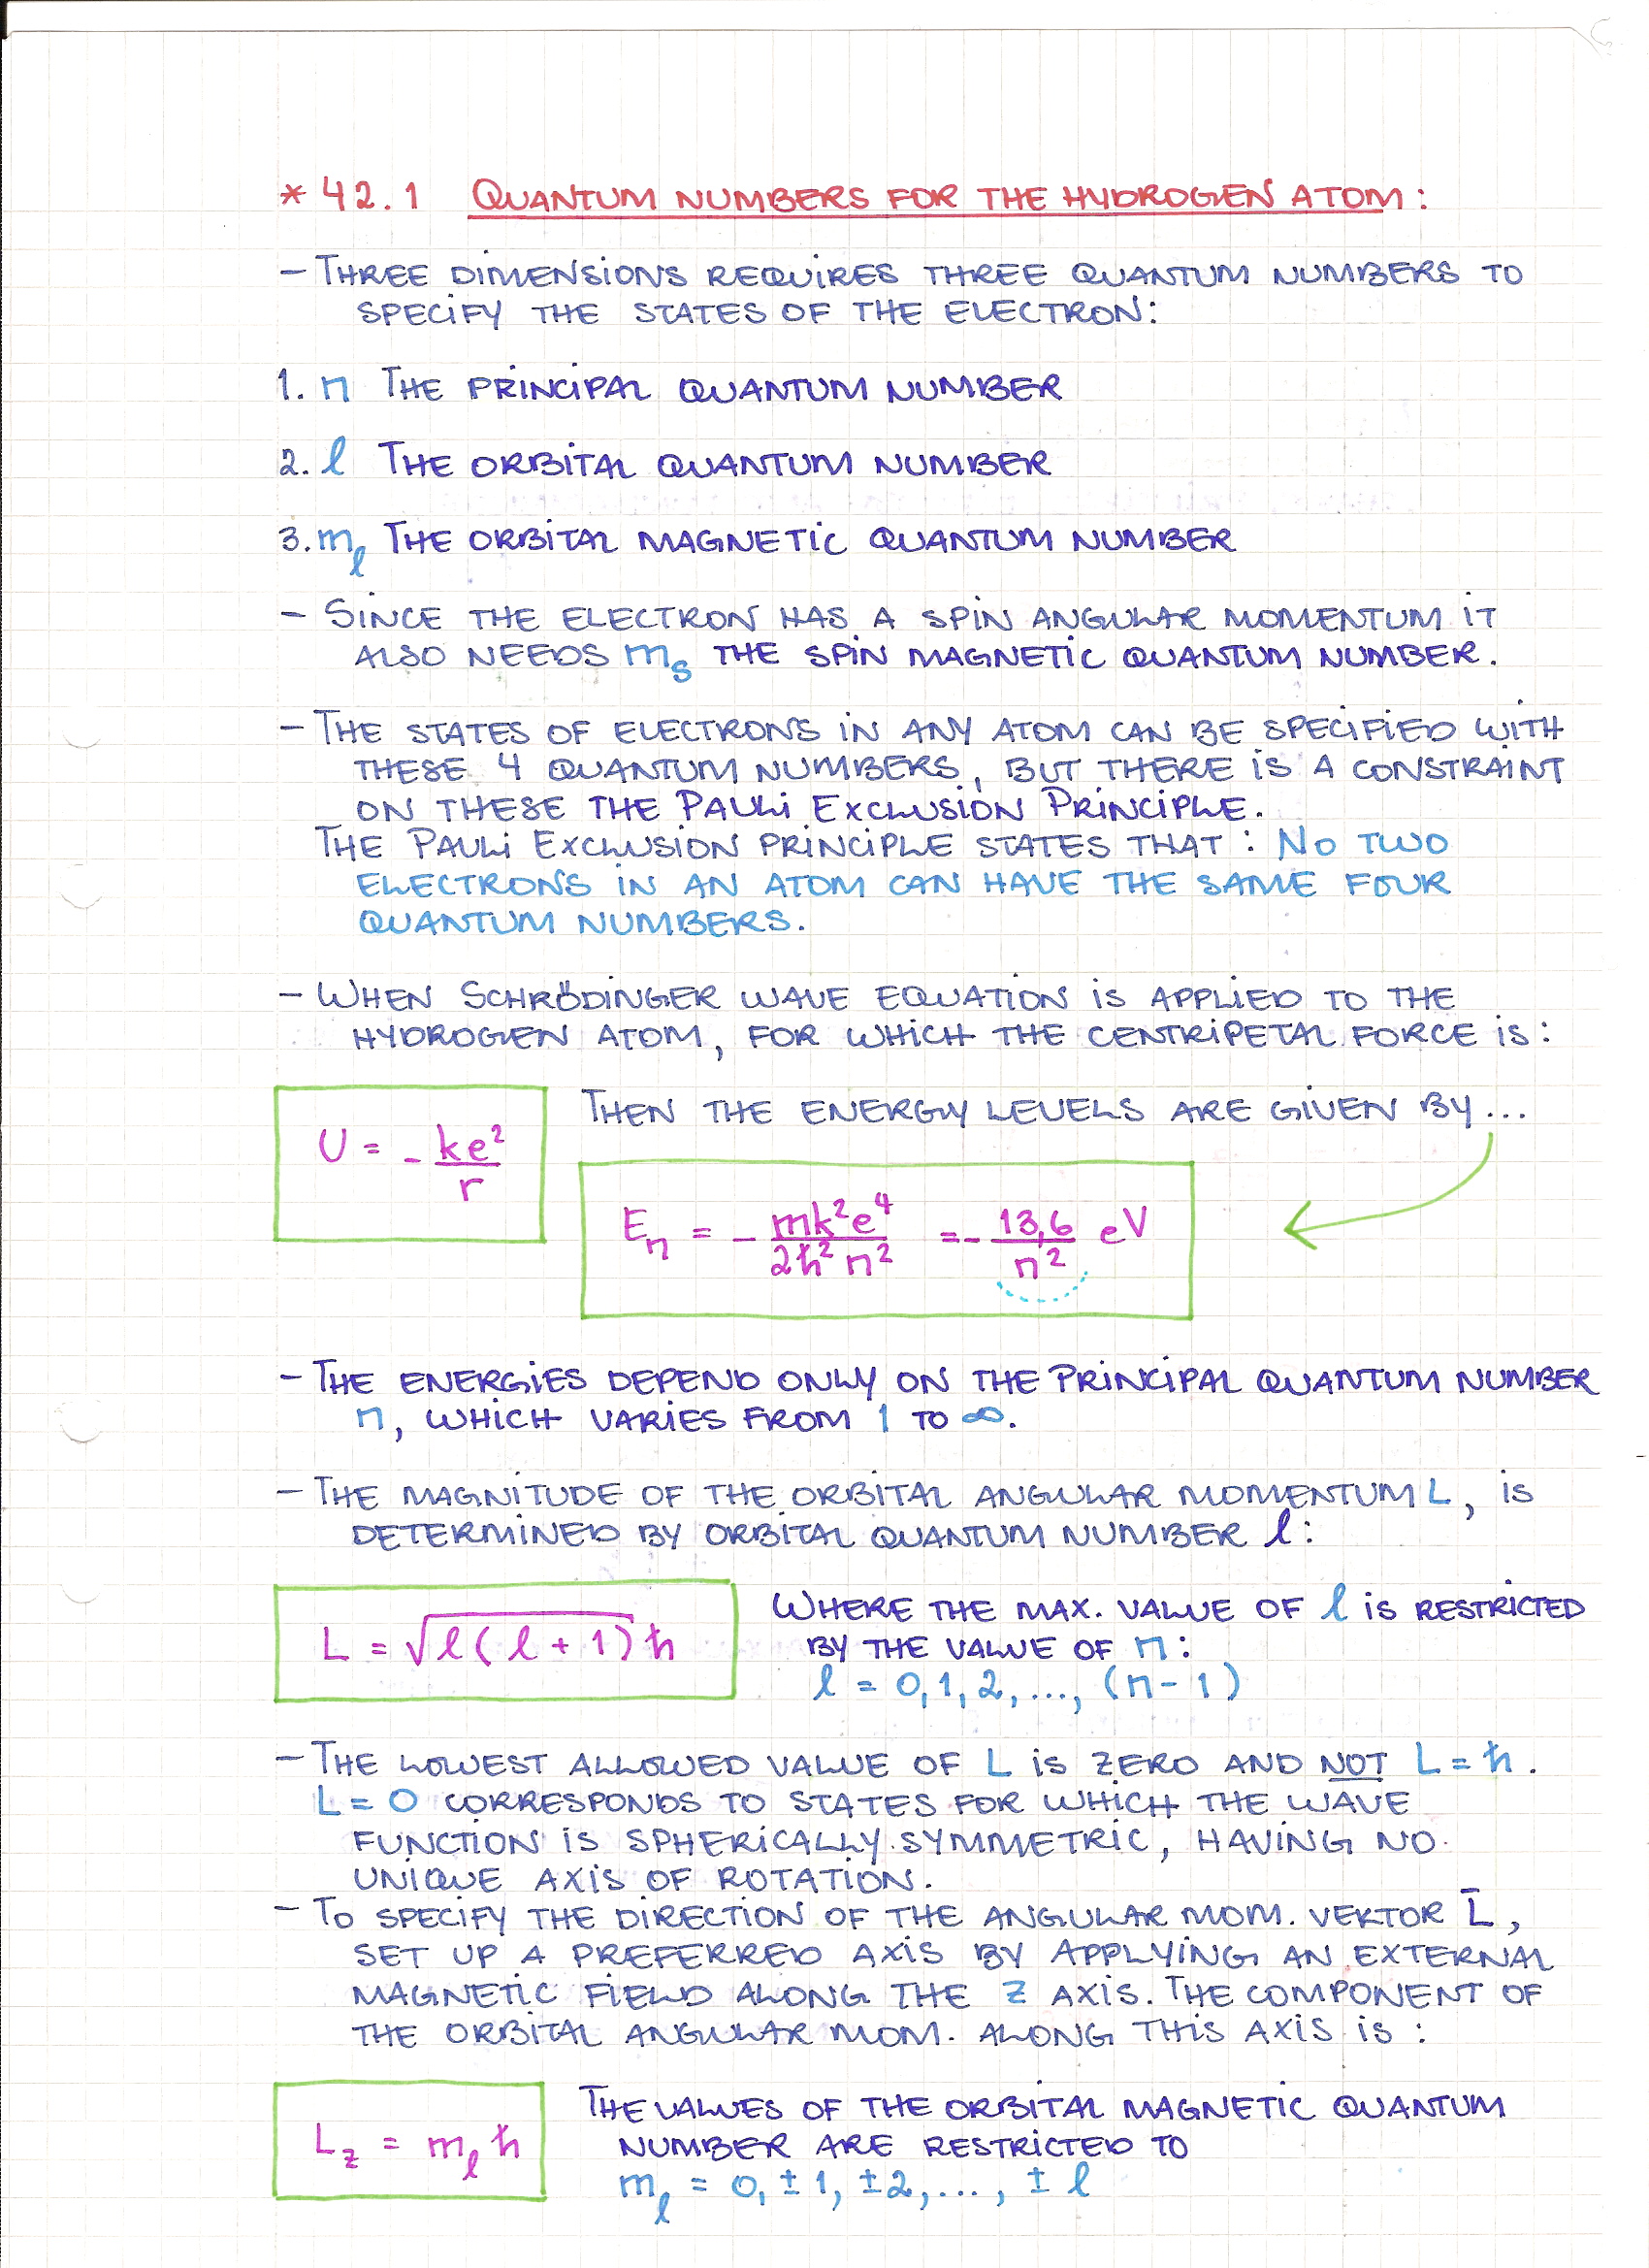 * 42.1 QUANTUM NUMBERS FOR THE HYDROGEN ATOM:
- THREE DIMENSIONS REQUIRES THREE QUANTUM NUMBERS TO
SPECIFY THE STATES OF THE ELECTRON:
1. n THE PRINCIPAL QUANTUM NUMBER
2. ℓ THE ORBITAL QUANTUM NUMBER
3. mℓ THE ORBITAL MAGNETIC QUANTUM NUMBER
- SINCE THE ELECTRON HAS A SPIN ANGULAR MOMENTUM IT
ALSO NEEDS ms THE SPIN MAGNETIC QUANTUM NUMBER.
- THE STATES OF ELECTRONS IN ANY ATOM CAN BE SPECIFIED WITH
THESE 4 QUANTUM NUMBERS, BUT THERE IS A CONSTRAINT
ON THESE THE PAULI EXCLUSION PRINCIPLE.
THE PAULI EXCLUSION PRINCIPLE STATES THAT: NO TWO
ELECTRONS IN AN ATOM CAN HAVE THE SAME FOUR
QUANTUM NUMBERS.
- WHEN SCHRÖDINGER WAVE EQUATION IS APPLIED TO THE
HYDROGEN ATOM, FOR WHICH THE CENTRIPETAL FORCE IS:
U = - ke²/r
THEN THE ENERGY LEVELS ARE GIVEN BY...
En = - mk²e⁴/2ħ²n² = - 13,6/n² eV
- THE ENERGIES DEPEND ONLY ON THE PRINCIPAL QUANTUM NUMBER
n, WHICH VARIES FROM 1 TO ∞.
- THE MAGNITUDE OF THE ORBITAL ANGULAR MOMENTUM L, IS
DETERMINED BY ORBITAL QUANTUM NUMBER ℓ:
L = √ℓ(ℓ+1) ħ
WHERE THE MAX. VALUE OF ℓ IS RESTRICTED
BY THE VALUE OF n:
ℓ = 0, 1, 2, ..., (n-1)
- THE LOWEST ALLOWED VALUE OF L IS ZERO AND NOT L = ħ.
L = 0 CORRESPONDS TO STATES FOR WHICH THE WAVE
FUNCTION IS SPHERICALLY SYMMETRIC, HAVING NO
UNIQUE AXIS OF ROTATION.
- TO SPECIFY THE DIRECTION OF THE ANGULAR MOM. VEKTOR L̄,
SET UP A PREFERRED AXIS BY APPLYING AN EXTERNAL
MAGNETIC FIELD ALONG THE Z AXIS. THE COMPONENT OF
THE ORBITAL ANGULAR MOM. ALONG THIS AXIS IS:
Lz = mℓ ħ
THE VALUES OF THE ORBITAL MAGNETIC QUANTUM
NUMBER ARE RESTRICTED TO
mℓ = 0, ±1, ±2, ..., ±ℓ